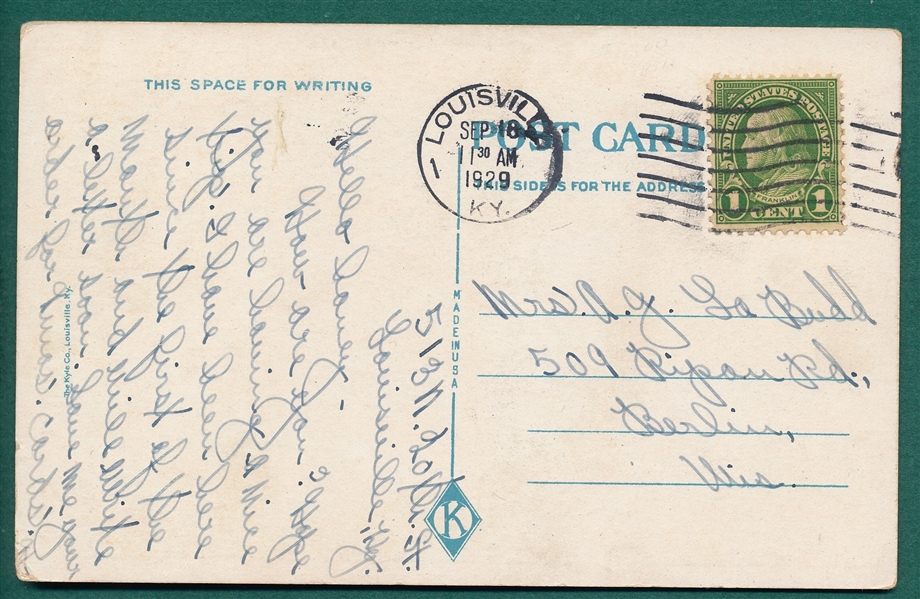 THIS SPACE FOR WRITING
513 N. 20th St.
Louisville, Ky.
Hello
How are you? Hope
you are having a nice
trip. I have been here
since the first of the
month and will write
a letter soon.
address for yours.
The Kyle Co., Louisville, Ky.
MADE IN USA
K
LOUISVILLE
SEP 18
11 30 AM
1929
KY.
1
POST CARD
THIS SIDE IS FOR THE ADDRESS
UNITED STATES POSTAGE
FRANKLIN
1 CENT 1
Mrs. A. J. La Budd
509 Ripon Rd.,
Berlin,
Wis.